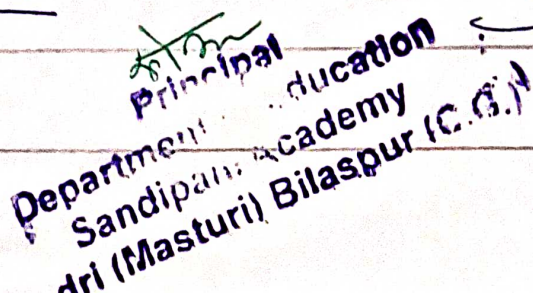 Principal
Department ducation
Sandipani Academy
dri (Masturi) Bilaspur (C.G.)